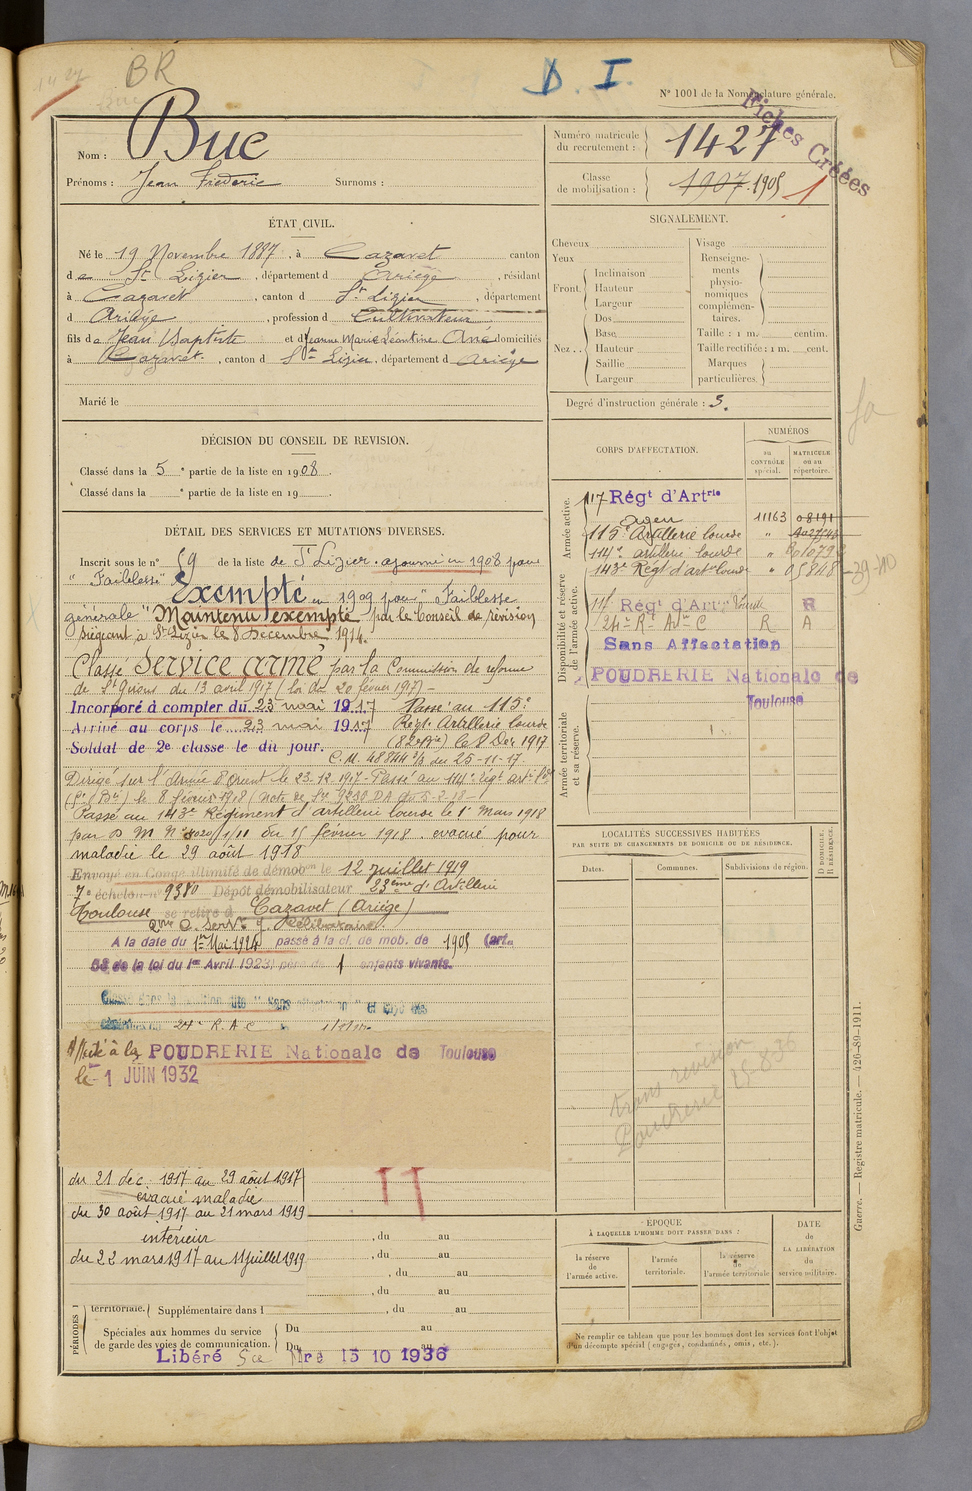 BR
D. I.
N° 1001 de la Nomenclature générale.
Fiches Créées
Nom : Buc
Prénoms : Jean Frédéric Surnoms :
Numéro matricule du recrutement : 1427
Classe de mobilisation : 1907. 1905
1
ÉTAT CIVIL.
Né le 19 Novembre 1887, à Cazavet canton
de St Lizier, département d Ariège, résidant
à Cazavet, canton d St Lizier, département
d Ariège, profession d Cultivateur
fils de Jean Baptiste et d Jeanne Marie Léontine Ané domiciliés
à Cazavet, canton d St Lizier, département d Ariège
Marié le
SIGNALEMENT.
Cheveux
Yeux
Front. Inclinaison
Hauteur
Largeur
Nez.. Dos
Base
Hauteur
Saillie
Largeur
Visage
Renseignements physionomiques complémentaires.
Taille : 1 m. centim.
Taille rectifiée : 1 m. cent.
Marques particulières.
Degré d'instruction générale : 3.
DÉCISION DU CONSEIL DE REVISION.
Classé dans la 5e partie de la liste en 1908.
Classé dans la e partie de la liste en 19 .
CORPS D'AFFECTATION.
NUMÉROS
au CONTRÔLE spécial.
MATRICULE ou au répertoire.
Armée active.
117 Régt d'Artrie
agen 11163 08191
115e Artillerie lourde "
114e artillerie lourde "
143e Régt d'artie lourde " 05848
Disponibilité et réserve de l'armée active.
Régt d'Artie lourde R
24e Rt Artie C R A
Sans Affectation
POUDRERIE Nationale de
Toulouse
Armée territoriale et sa réserve.
DÉTAIL DES SERVICES ET MUTATIONS DIVERSES.
Inscrit sous le n° 59 de la liste de St Lizier. ajourné en 1908 pour
" Faiblesse " Exempté en 1909 pour " Faiblesse
générale " Maintenu exempté par le Conseil de révision
siégeant à St Lizier le 8 Décembre 1914.
Classé Service armé par la Commission de réforme
de St Girons du 13 avril 1917 (loi du 20 février 1917) -
Incorporé à compter du 23 mai 1917 Passé au 115e
Arrivé au corps le 23 mai 1917 Régt Artillerie lourde
Soldat de 2e classe le dit jour. (82e Bie) le 8 Dec 1917
C.M. 48844 3/3 du 25-11-17.
Dirigé sur l'Armée d'Orient le 23-12-1917 - Passé au 114e régt art. lde
le 8 février 1918
Passé au 143e Régiment d'artillerie lourde le 1er Mars 1918
par D M N° du 15 février 1918. evacué pour
maladie le 29 août 1918
Envoyé en Congé illimité de démobon le 12 juillet 1919
7e échelon n° 9380 Dépôt démobilisateur 23ème d'Artillerie
Toulouse se retire à Cazavet (Ariège)
A la date du 1er Mai 1924 passé à la cl. de mob. de 1905 (art.
58 de la loi du 1er Avril 1923) père de 1 enfants vivants.
24e R.A.C
Affecté à la POUDRERIE Nationale de Toulouse
le 1 JUIN 1932
du 21 déc. 1917 au 29 août 1917
évacué maladie
du 30 août 1917 au 21 mars 1919
intérieur , du au
du 22 mars 1917 au 11 juillet 1919
, du au
, du au
territoriale. Supplémentaire dans l , du au
PÉRIODES
Spéciales aux hommes du service de garde des voies de communication. Du au
Du au
Libéré Sce Mre 15 10 1936
LOCALITÉS SUCCESSIVES HABITÉES
PAR SUITE DE CHANGEMENTS DE DOMICILE OU DE RÉSIDENCE.
Dates. Communes. Subdivisions de région. D DOMICILE. R RÉSIDENCE.
trans révision
Poudrerie
ÉPOQUE
À LAQUELLE L'HOMME DOIT PASSER DANS :
la réserve de l'armée active.
l'armée territoriale.
la réserve de l'armée territoriale
DATE DE LA LIBÉRATION du service militaire.
Ne remplir ce tableau que pour les hommes dont les services font l'objet
d'un décompte spécial (engagés, condamnés, omis, etc.).
Guerre. — Registre matricule. — 426-89-1911.